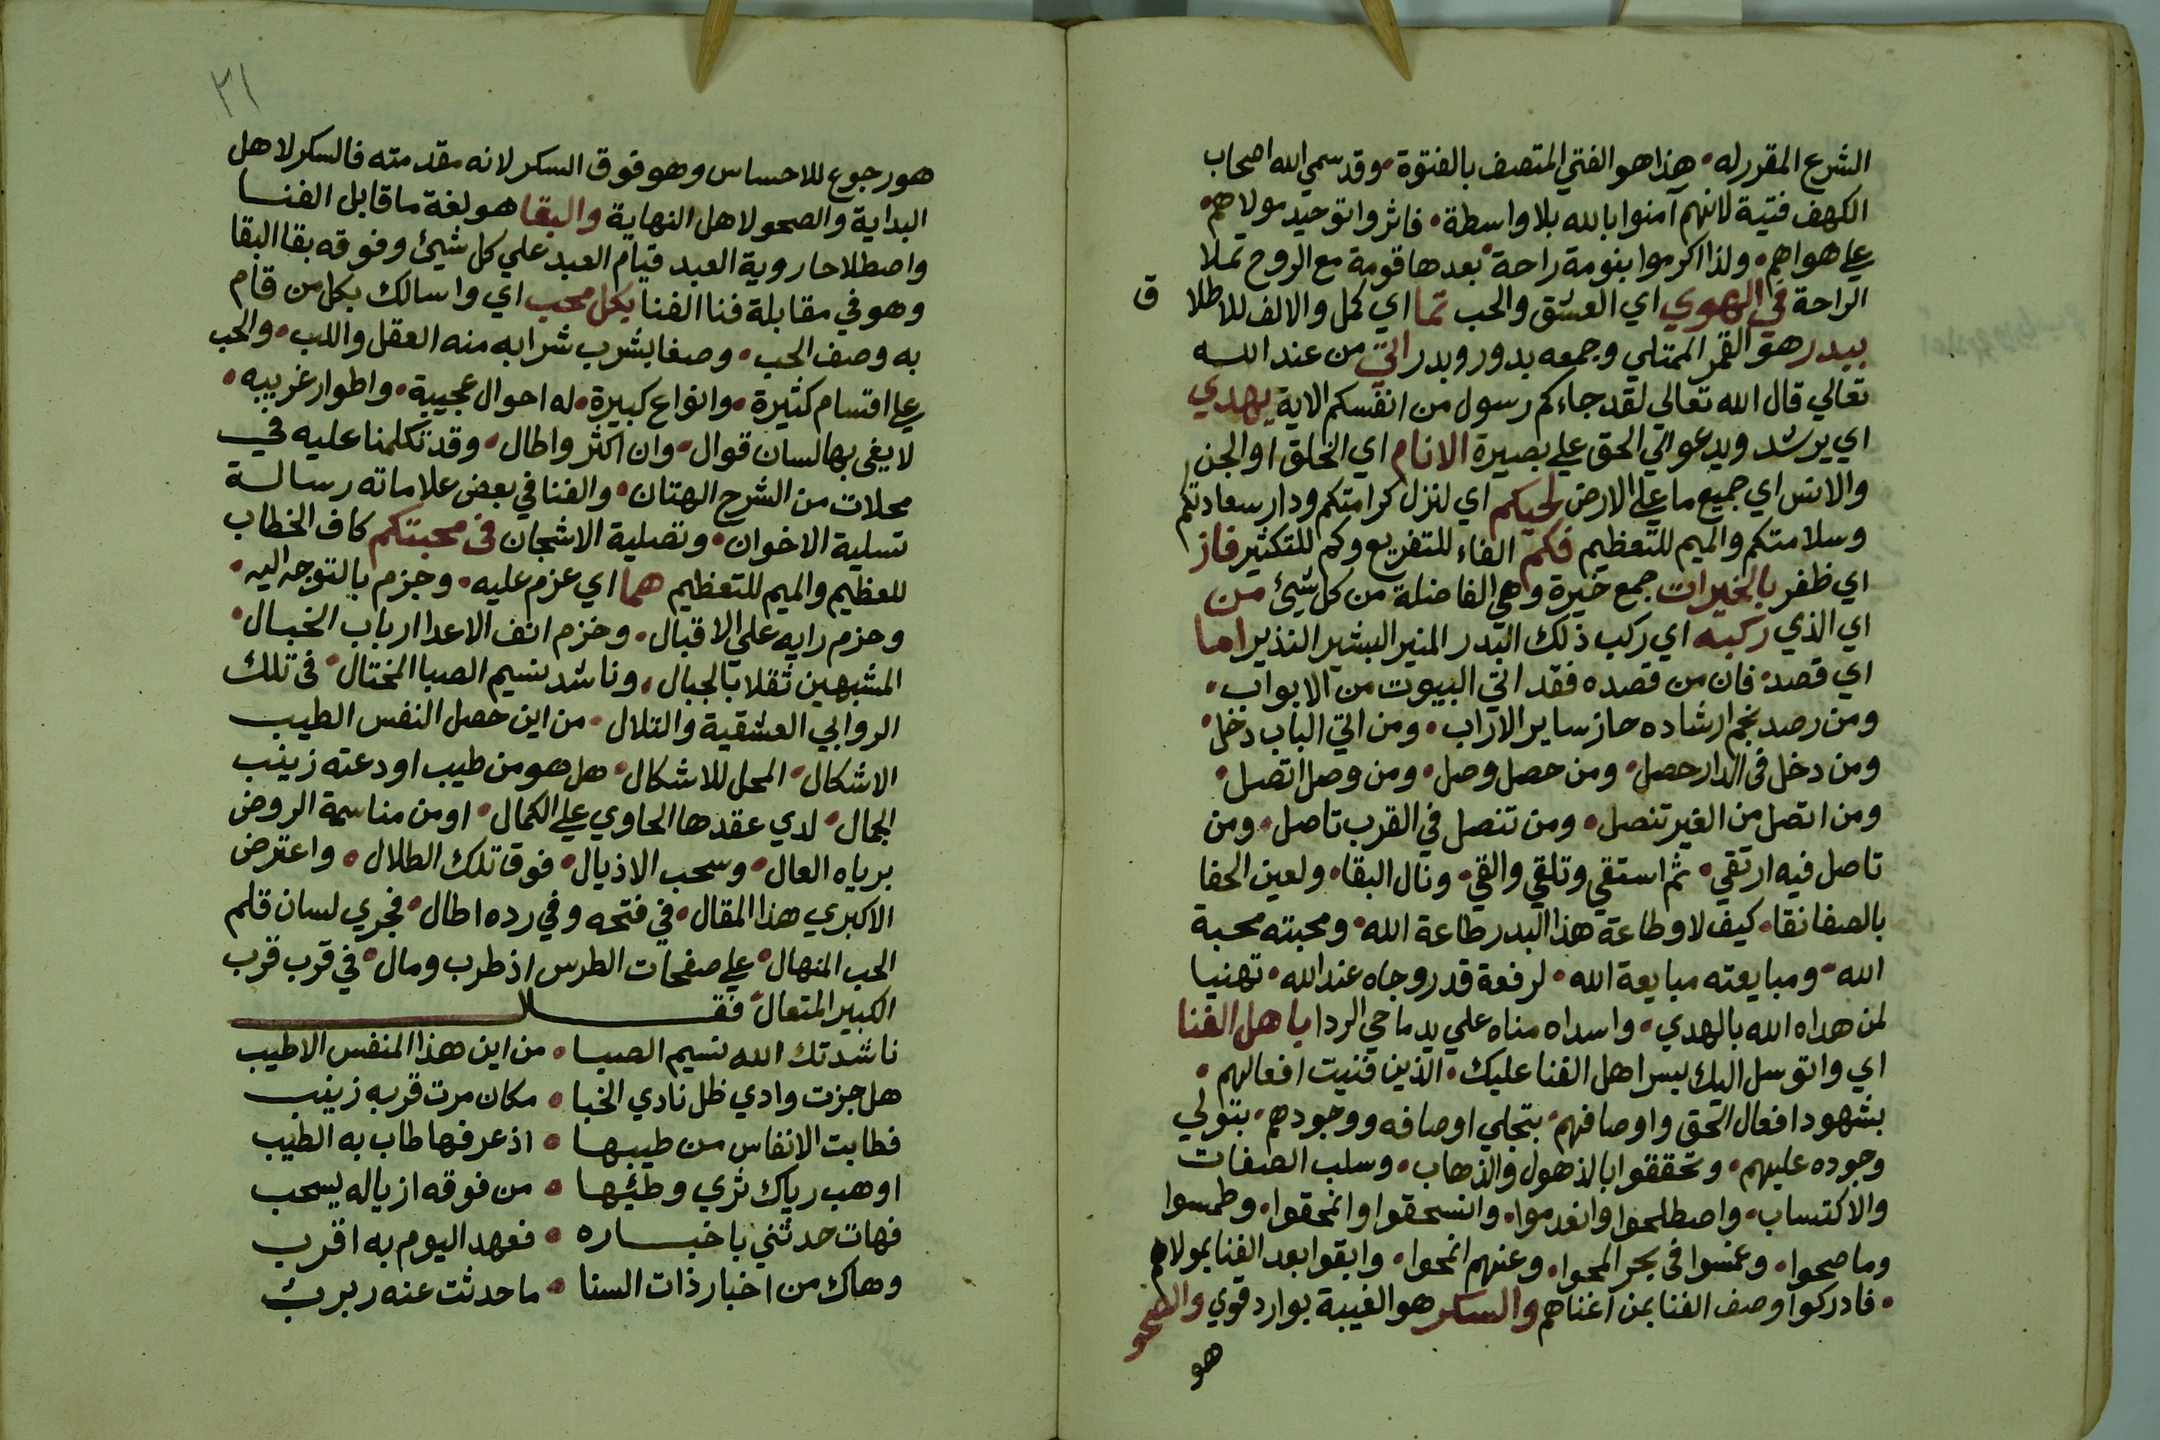 الشرع المقرر له هذا هو الفتي المتصف بالفتوة وقد سمي الله اصحاب
الكهف فتية لانهم آمنوا بالله بلا واسطة فاثروا توحيد مولاهم
علي هواهم ولذا اكرموا بنومة راحة بعدها قومة مع الروح تملا
الراحة في الهوي اي العشق والحب تما اي كمل والالف للاطلا ق
ببدر هو القمر الممتلي وجمعه بدور وبدر اتي من عند الله
تعالي قال الله تعالي لقد جاءكم رسول من انفسكم الاية يهدي
اي يرشد ويدعو الي الحق علي بصيرة الانام اي الخلق او الجن
والانس اي جميع ما علي الارض لحيكم اي لنزل كرامتكم ودار سعادتكم
وسلامتكم والميم للتعظيم فكم الفاء للتفريع وكم للتكثير فاز
اي ظفر بالخيرات جمع خيرة وهي الفاضلة من كل شيئ من
اي الذي ركبه اي ركب ذلك البدر المنير البشير النذير اما
اي قصد فان من قصده فقد اتي البيوت من الابواب
ومن رصد نجم ارشاده حاز ساير الاراب ومن اتي الباب دخل
ومن دخل في الدار حصل ومن حصل وصل ومن وصل اتصل
ومن اتصل من الغير تنصل ومن تنصل في القرب تاصل ومن
تاصل فيه ارتقي ثم استقي وتلقي والقي ونال البقا ولعين الحفا
بالصفا نقا كيف لا وطاعة هذا البدر طاعة الله ومحبته محبة
الله ومبايعته مبايعة الله لرفعة قدر وجاه عند الله تهنيا
لمن هداه الله بالهدي واسداه مناه علي يد ماحي الردا باهل الفنا
اي واتوسل اليك بسر اهل الفنا عليك الذين فنيت افعالهم
بشهود افعال الحق واوصافهم بتجلي اوصافه ووجودهم بتولي
وجوده عليهم وتحققوا بالذهول والذهاب وسلب الصفات
والاكتساب واصطلحوا وانعدموا وانسحقوا وانمحقوا وطمسوا
وما صحوا وغمسوا في بحر المحوا وعنهم انمحوا وابقوا بعد الفنا بمولاهم
فادركوا وصف الفنا بمن اغناهم والسكر هو الغيبة بوارد قوي والصحو
هو
٢١
هو رجوع للاحساس وهو فوق السكر لانه مقدمته فالسكر لاهل
البداية والصحو لاهل النهاية والبقا هو لغة ما قابل الفنا
واصطلاحا روية العبد قيام العبد علي كل شيئ وفوقه بقا البقا
وهو في مقابلة فنا الفنا بكل محب اي واسالك بكل من قام
به وصف الحب وصفا بشرب شرابه منه العقل واللب والحب
علي اقسام كثيرة وانواع كبيرة له احوال عجيبة واطوار غريبه
لا يفي بها لسان قوال وان اكثر واطال وقد تكلمنا عليه في
محلات من الشرح الهتان والفنا في بعض علاماته رسالة
تسلية الاخوان وتصلية الاشجان في محبتكم كاف الخطاب
للعظيم والميم للتعظيم هما اي عزم عليه وجزم بالتوجه اليه
وحزم رايه علي الاقبال وخزم انف الاعدا ارباب الخبال
المشبهين ثقلا بالجبال وناشد نسيم الصبا المختال في تلك
الروابي العشقية والتلال من اين حصل النفس الطيب
الاشكال المحل للاشكال هل هو من طيب اودعته زينب
الجمال لدي عقدها الحاوي علي الكمال او من مناسمة الروض
برياه العال وسحب الاذيال فوق تلك الطلال واعترض
الاكبري هذا المقال في فتحه وفي رده اطال فجري لسان قلم
الحب المنهال علي صفحات الطرس اذ طرب ومال في قرب قرب
الكبير المتعال فقـــال
ناشدتك الله نسيم الصبا من اين هذا المنفس الاطيب
هل جزت وادي ظل نادي الخبا مكان مرت قربه زينب
فطابت الانفاس من طيبها اذ عرفها طاب به الطيب
او هب رياك ثري وطئها من فوقه ازياله يسحب
فهات حدثني باخباره فعهد اليوم به اقرب
وهاك من اخبار ذات السنا ما حدثت عنه ربرب